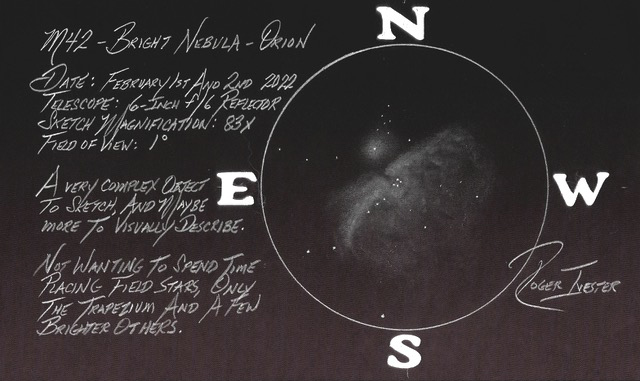 M42 - Bright Nebula - Orion
Date: February 1st And 2nd 2022
Telescope: 6-Inch f/6 Reflector
Sketch Magnification: 83x
Field of View: 1°
A very complex Object
To Sketch, And Maybe
more To Visually Describe.
Not Wanting To Spend Time
Placing Field Stars, Only
The Trapezium And A Few
Brighter Others.
N
E
W
S
Roger Ivester